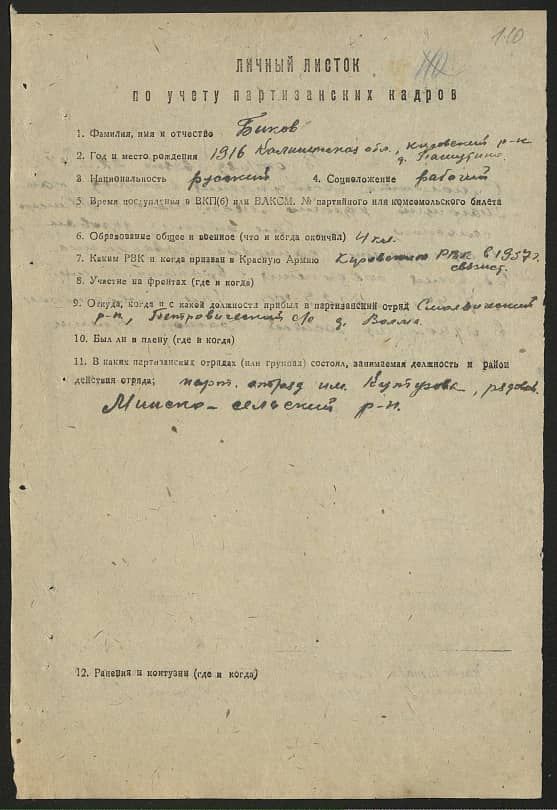 110
ЛИЧНЫЙ ЛИСТОК
по учету партизанских кадров
1. Фамилия, имя и отчество Быков
2. Год и место рождения 1916 Калининская обл., Кировский р-н
д.
3 Национальность русский 4. Соцположение рабочий
5. Время поступления в ВКП(б) или ВЛКСМ. № партийного или комсомольского билета
6. Образование общее и военное (что и когда окончил) 4 кл.
7. Каким РВК и когда призван в Красную Армию Кировским РВК в 1937г.
8. Участие на фронтах (где и когда)
9. Откуда, когда и с какой должности прибыл в партизанский отряд Смолевичский
р-н, Петровический с/с д. Волма.
10. Был ли в плену (где и когда)
11. В каких партизанских отрядах (или группах) состоял, занимаемая должность и район
действия отряда; парт. отряд им. Кутузова, рядов.
Минско-сельский р-н.
12. Ранения и контузии (где и когда)